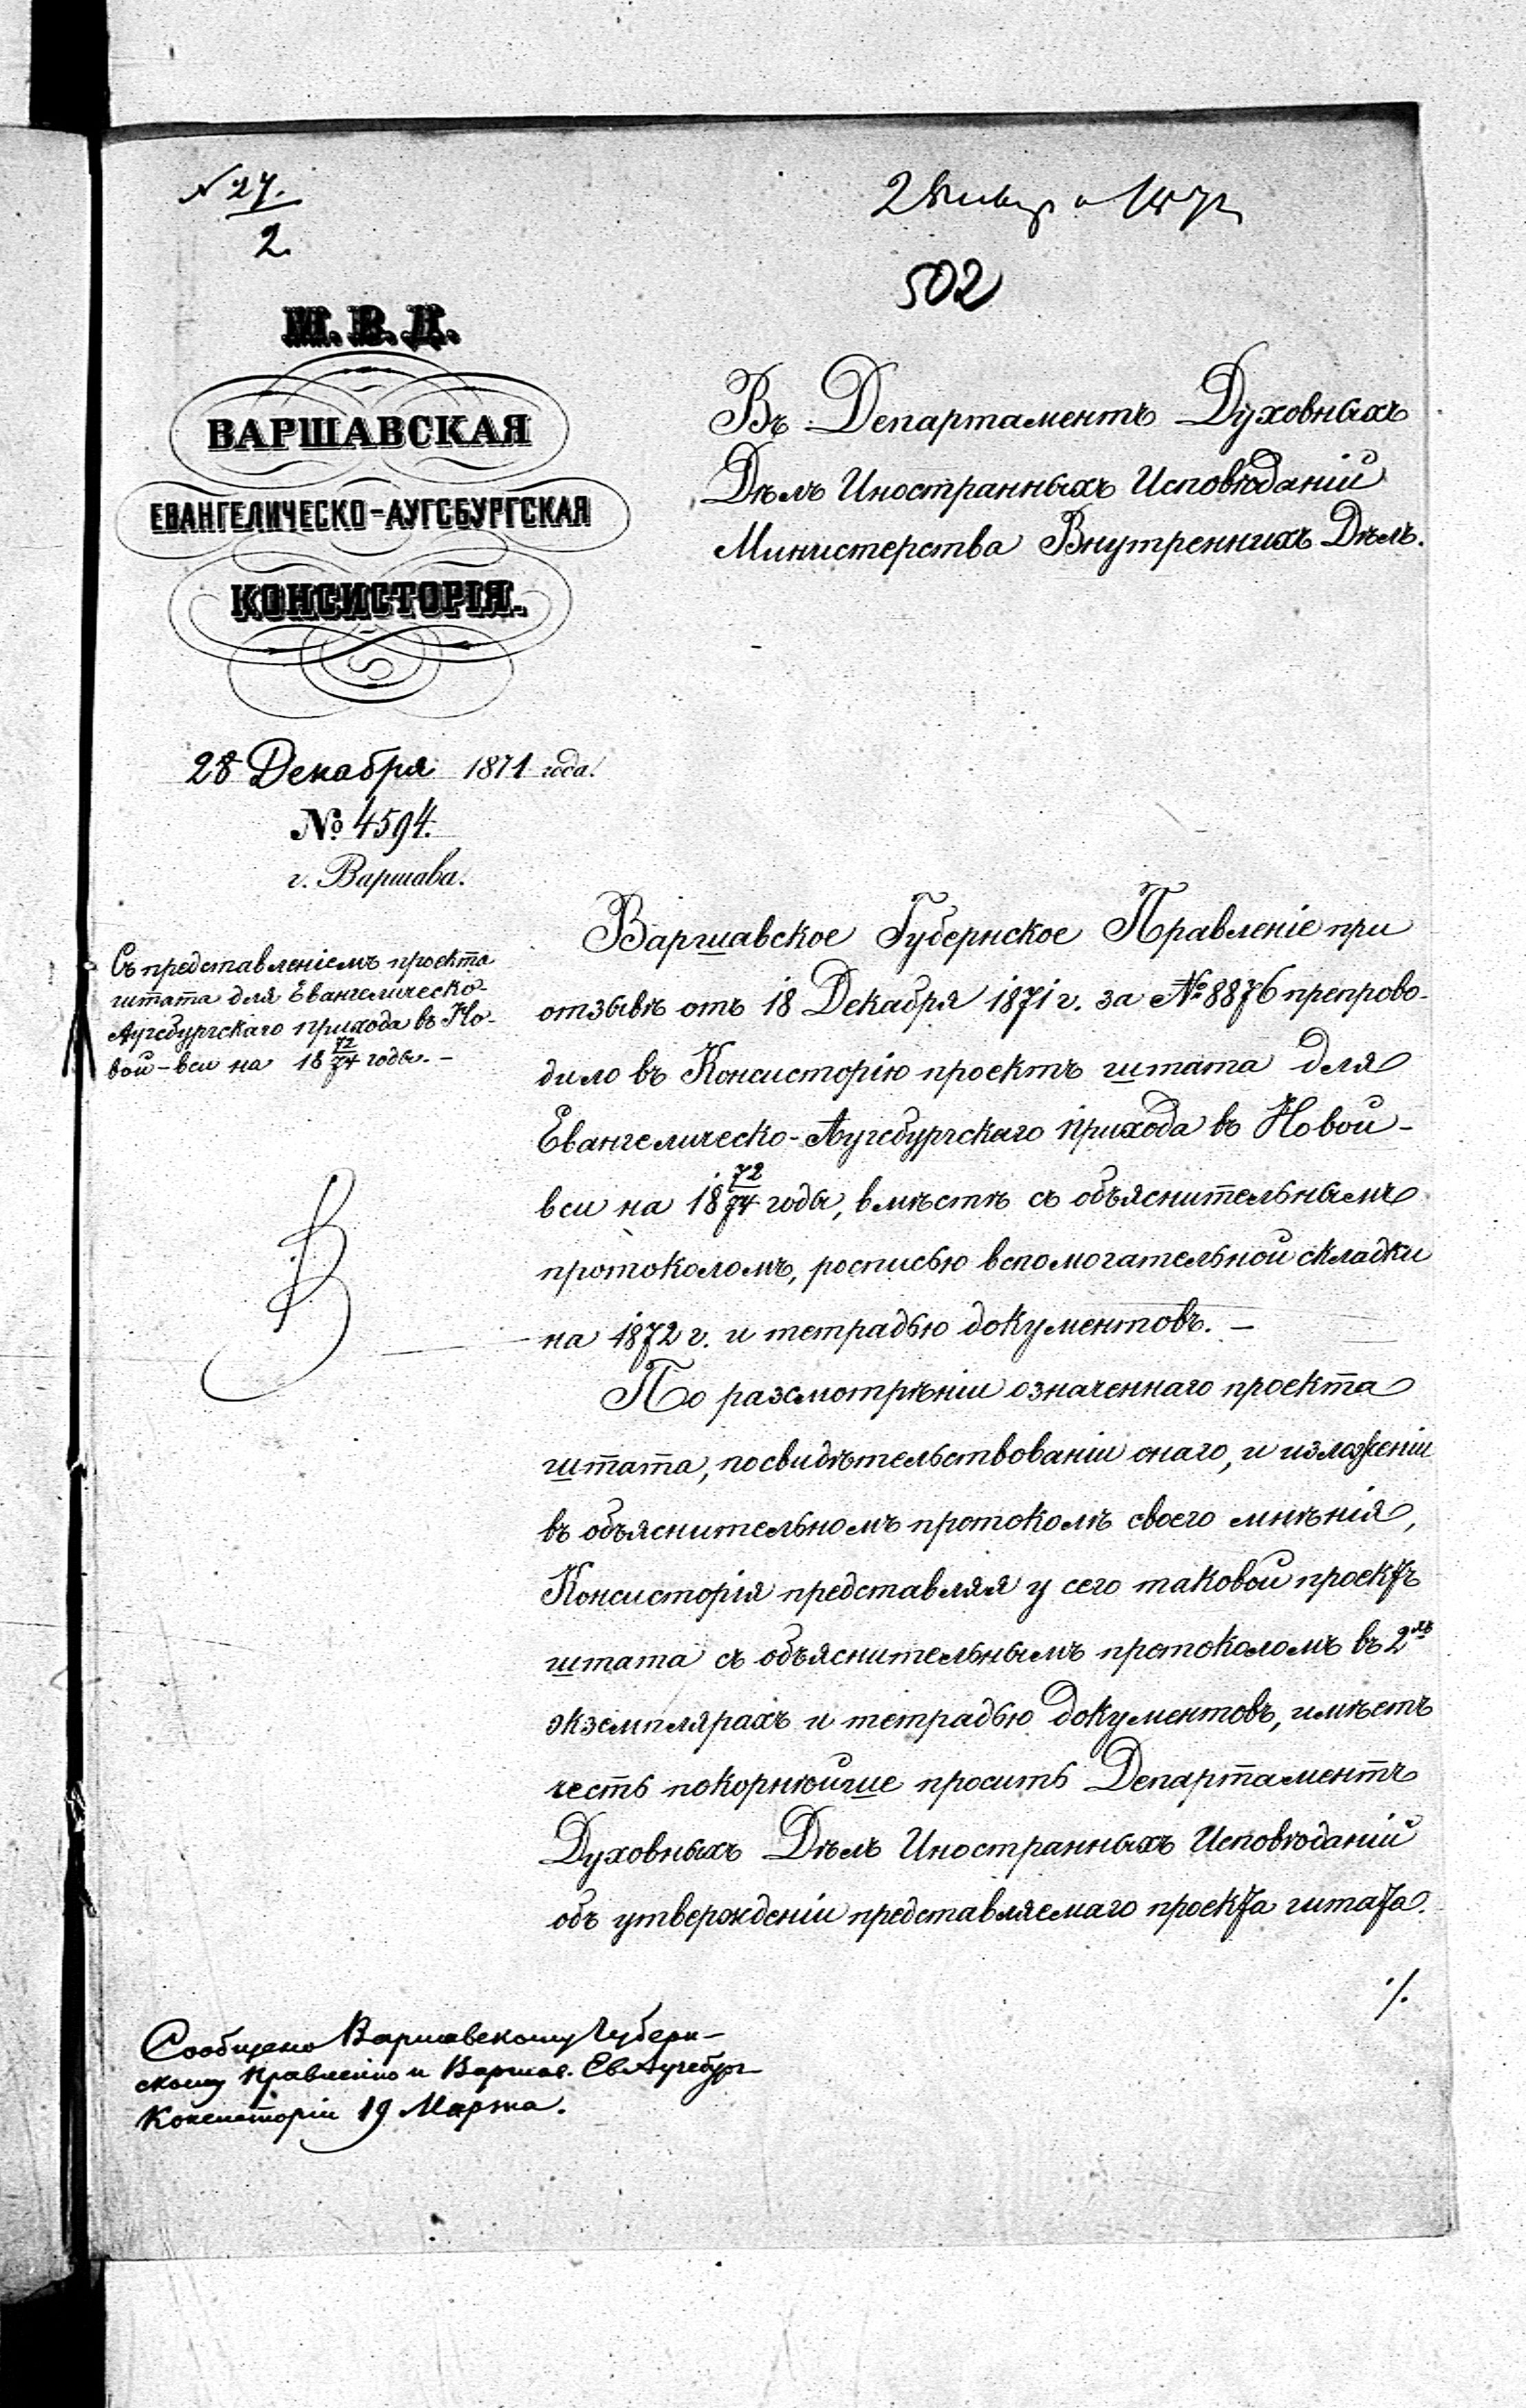 № 27.
2.
2 Января 1872
502
М. В. Д.
ВАРШАВСКАЯ
ЕВАНГЕЛИЧЕСКО-АУГСБУРГСКАЯ
КОНСИСТОРІЯ.
28 Декабря 1871 года.
№ 4594.
г. Варшава.
Съ представленіемъ проекта
штата для Евангелическо-
Аугсбургскаго прихода въ Но-
вой-вси на 18 72/74 годы. –
Въ Департаментъ Духовныхъ
Дѣлъ Иностранныхъ Исповѣданій
Министерства Внутреннихъ Дѣлъ.
Варшавское Губернское Правленіе при
отзывѣ отъ 18 Декабря 1871 г. за № 8876 препрово-
дило въ Консисторію проектъ штата для
Евангелическо-Аугсбургскаго прихода въ Новой-
вси на 18 72/74 годы, вмѣстѣ съ объяснительнымъ
протоколомъ, росписью вспомогательной складки
на 1872 г. и тетрадью документовъ. –
По разсмотрѣніи означеннаго проекта
штата, посвидѣтельствованіи онаго, и изложеніи
въ объяснительномъ протоколѣ своего мнѣнія,
Консисторія представляя у сего таковой проектъ
штата съ объяснительнымъ протоколомъ въ 2хъ
экземплярахъ и тетрадью документовъ, имѣетъ
честь покорнѣйше просить Департаментъ
Духовныхъ Дѣлъ Иностранныхъ Исповѣданій
объ утвержденіи представляемаго проекта штата.
./.
Сообщено Варшавскому Губерн-
скому Правленію и Варшав. Ев Аугсбург
Консисторіи 19 Марта.